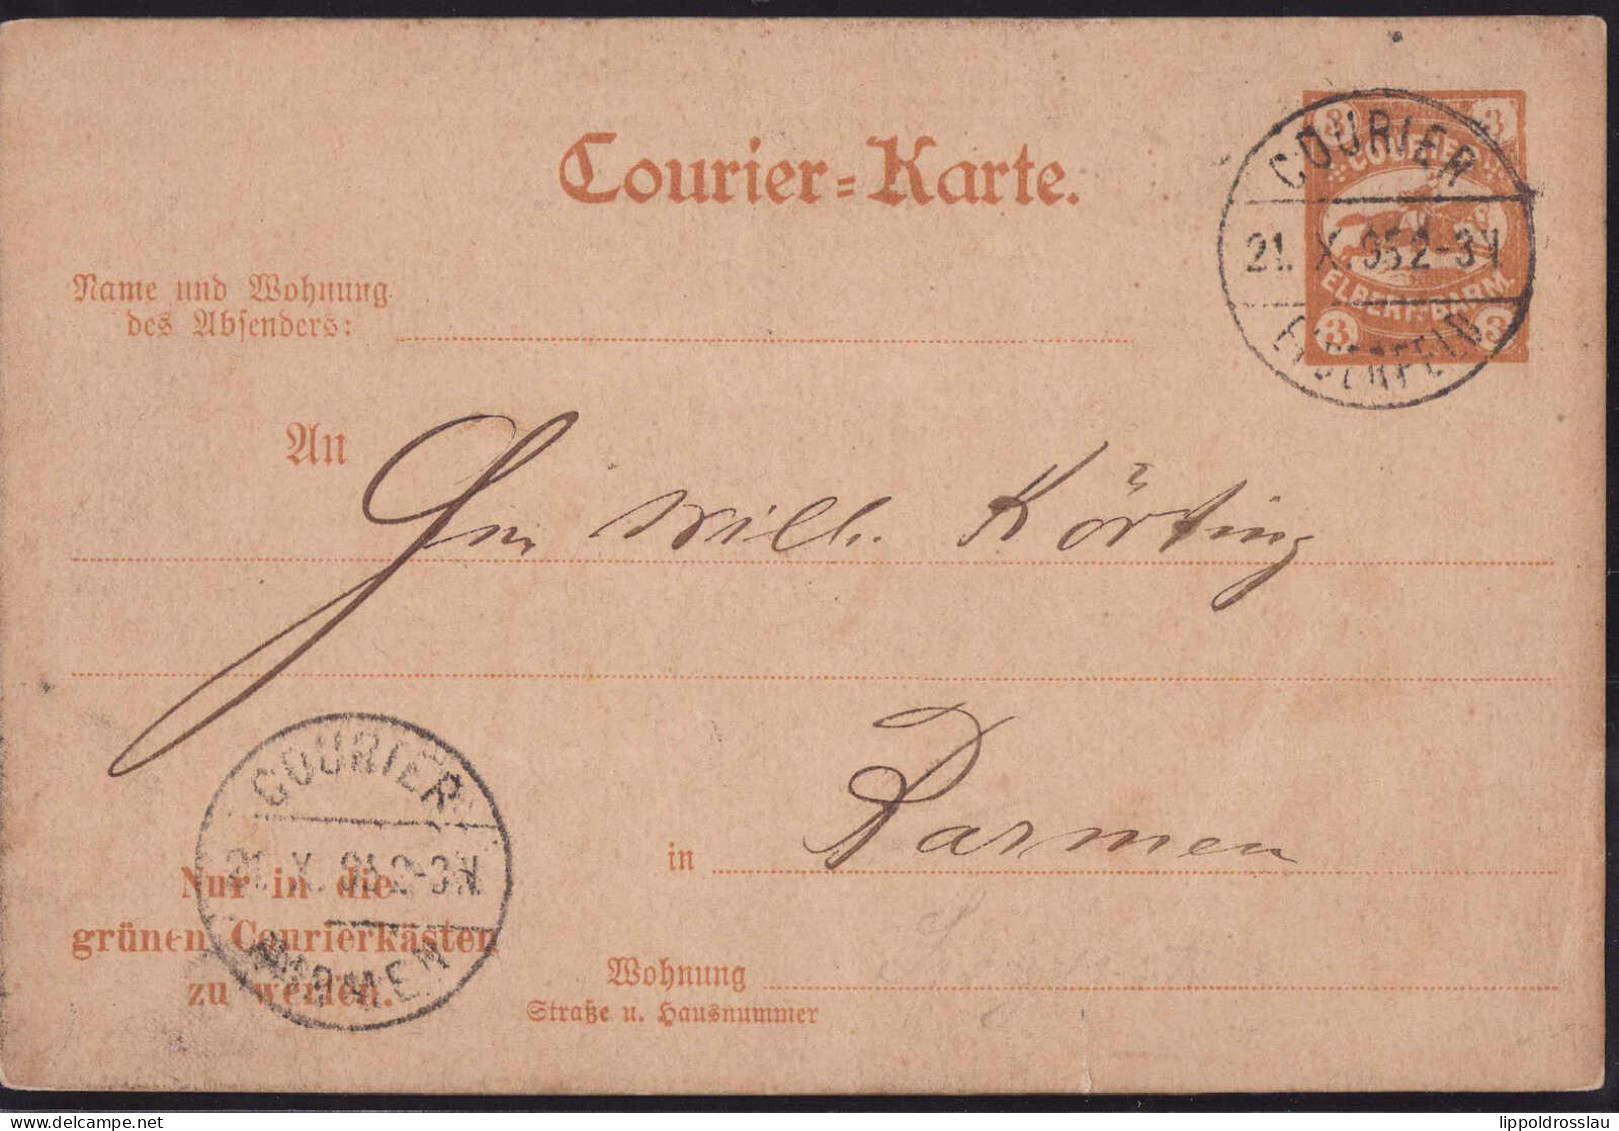 Courier=Karte.
3 3
COURIER
ELBERF.-BARM.
3 3
COURIER
21. X. 95 2-3 N.
ELBERFELD
Name und Wohnung
des Absenders:
An
Wilh. Körting
in Barmen
COURIER
21. X. 95 2-3 N.
BARMEN
Nur in die
grünen Courierkästen
zu werfen.
Wohnung
Straße u. Hausnummer
lippoldrosslau